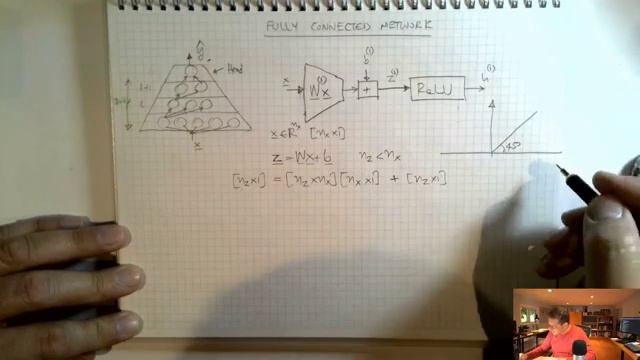 FULLY CONNECTED NETWORK
ŷ
Head
L+1
L
x
x
W^(1) x
b^(1)
+
z^(1)
ReLU
h^(1)
x ∈ R^(n_x) [n_x x 1]
z = Wx + b n_z < n_x
[n_z x 1] = [n_z x n_x] [n_x x 1] + [n_z x 1]
45°